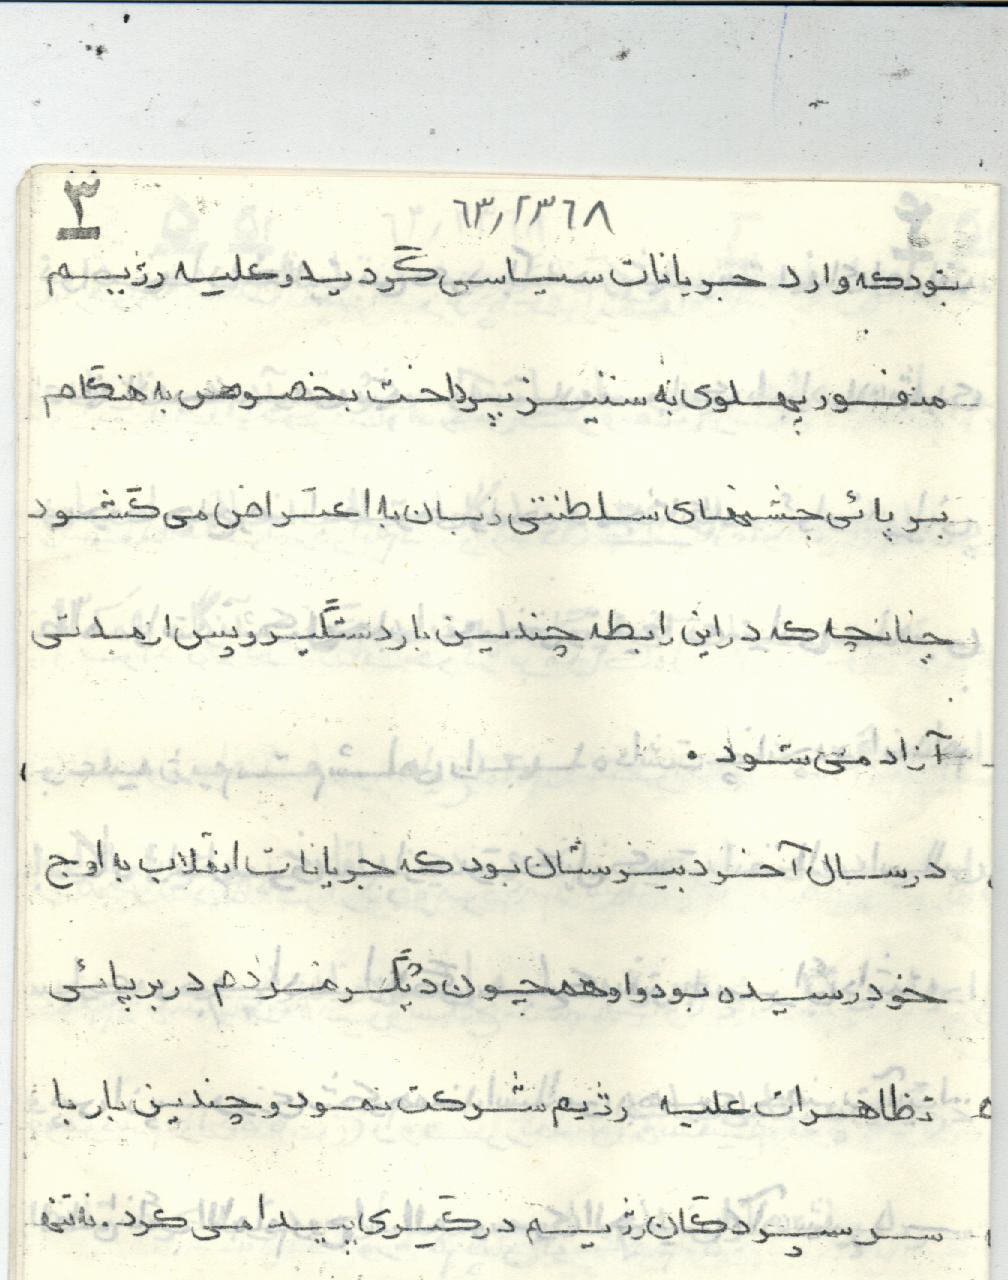 ۳
۶۳٫۲۳۶۸
بود که وارد جریانات سیاسی گردید و علیه رژیم
منفور پهلوی به ستیز پرداخت بخصوص به هنگام
بر پائی جشنهای سلطنتی زبان به اعتراض می گشود
چنانچه که در این رابطه چندین بار دستگیر و پس از مدتی
آزاد می شود .
در سال آخر دبیرستان بود که جریانات انقلاب به اوج
خود رسیده بود و او همچون دیگر مردم در برپائی
تظاهرات علیه رژیم شرکت نمود و چندین بار با
سر سپردگان رژیم درگیری پیدا می کرد . نه تنها